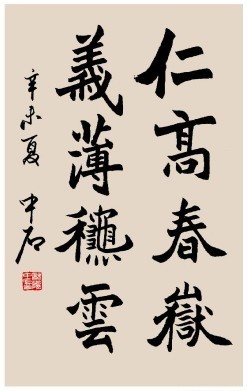 仁高春嶽
義薄穐雲
辛未夏 中石